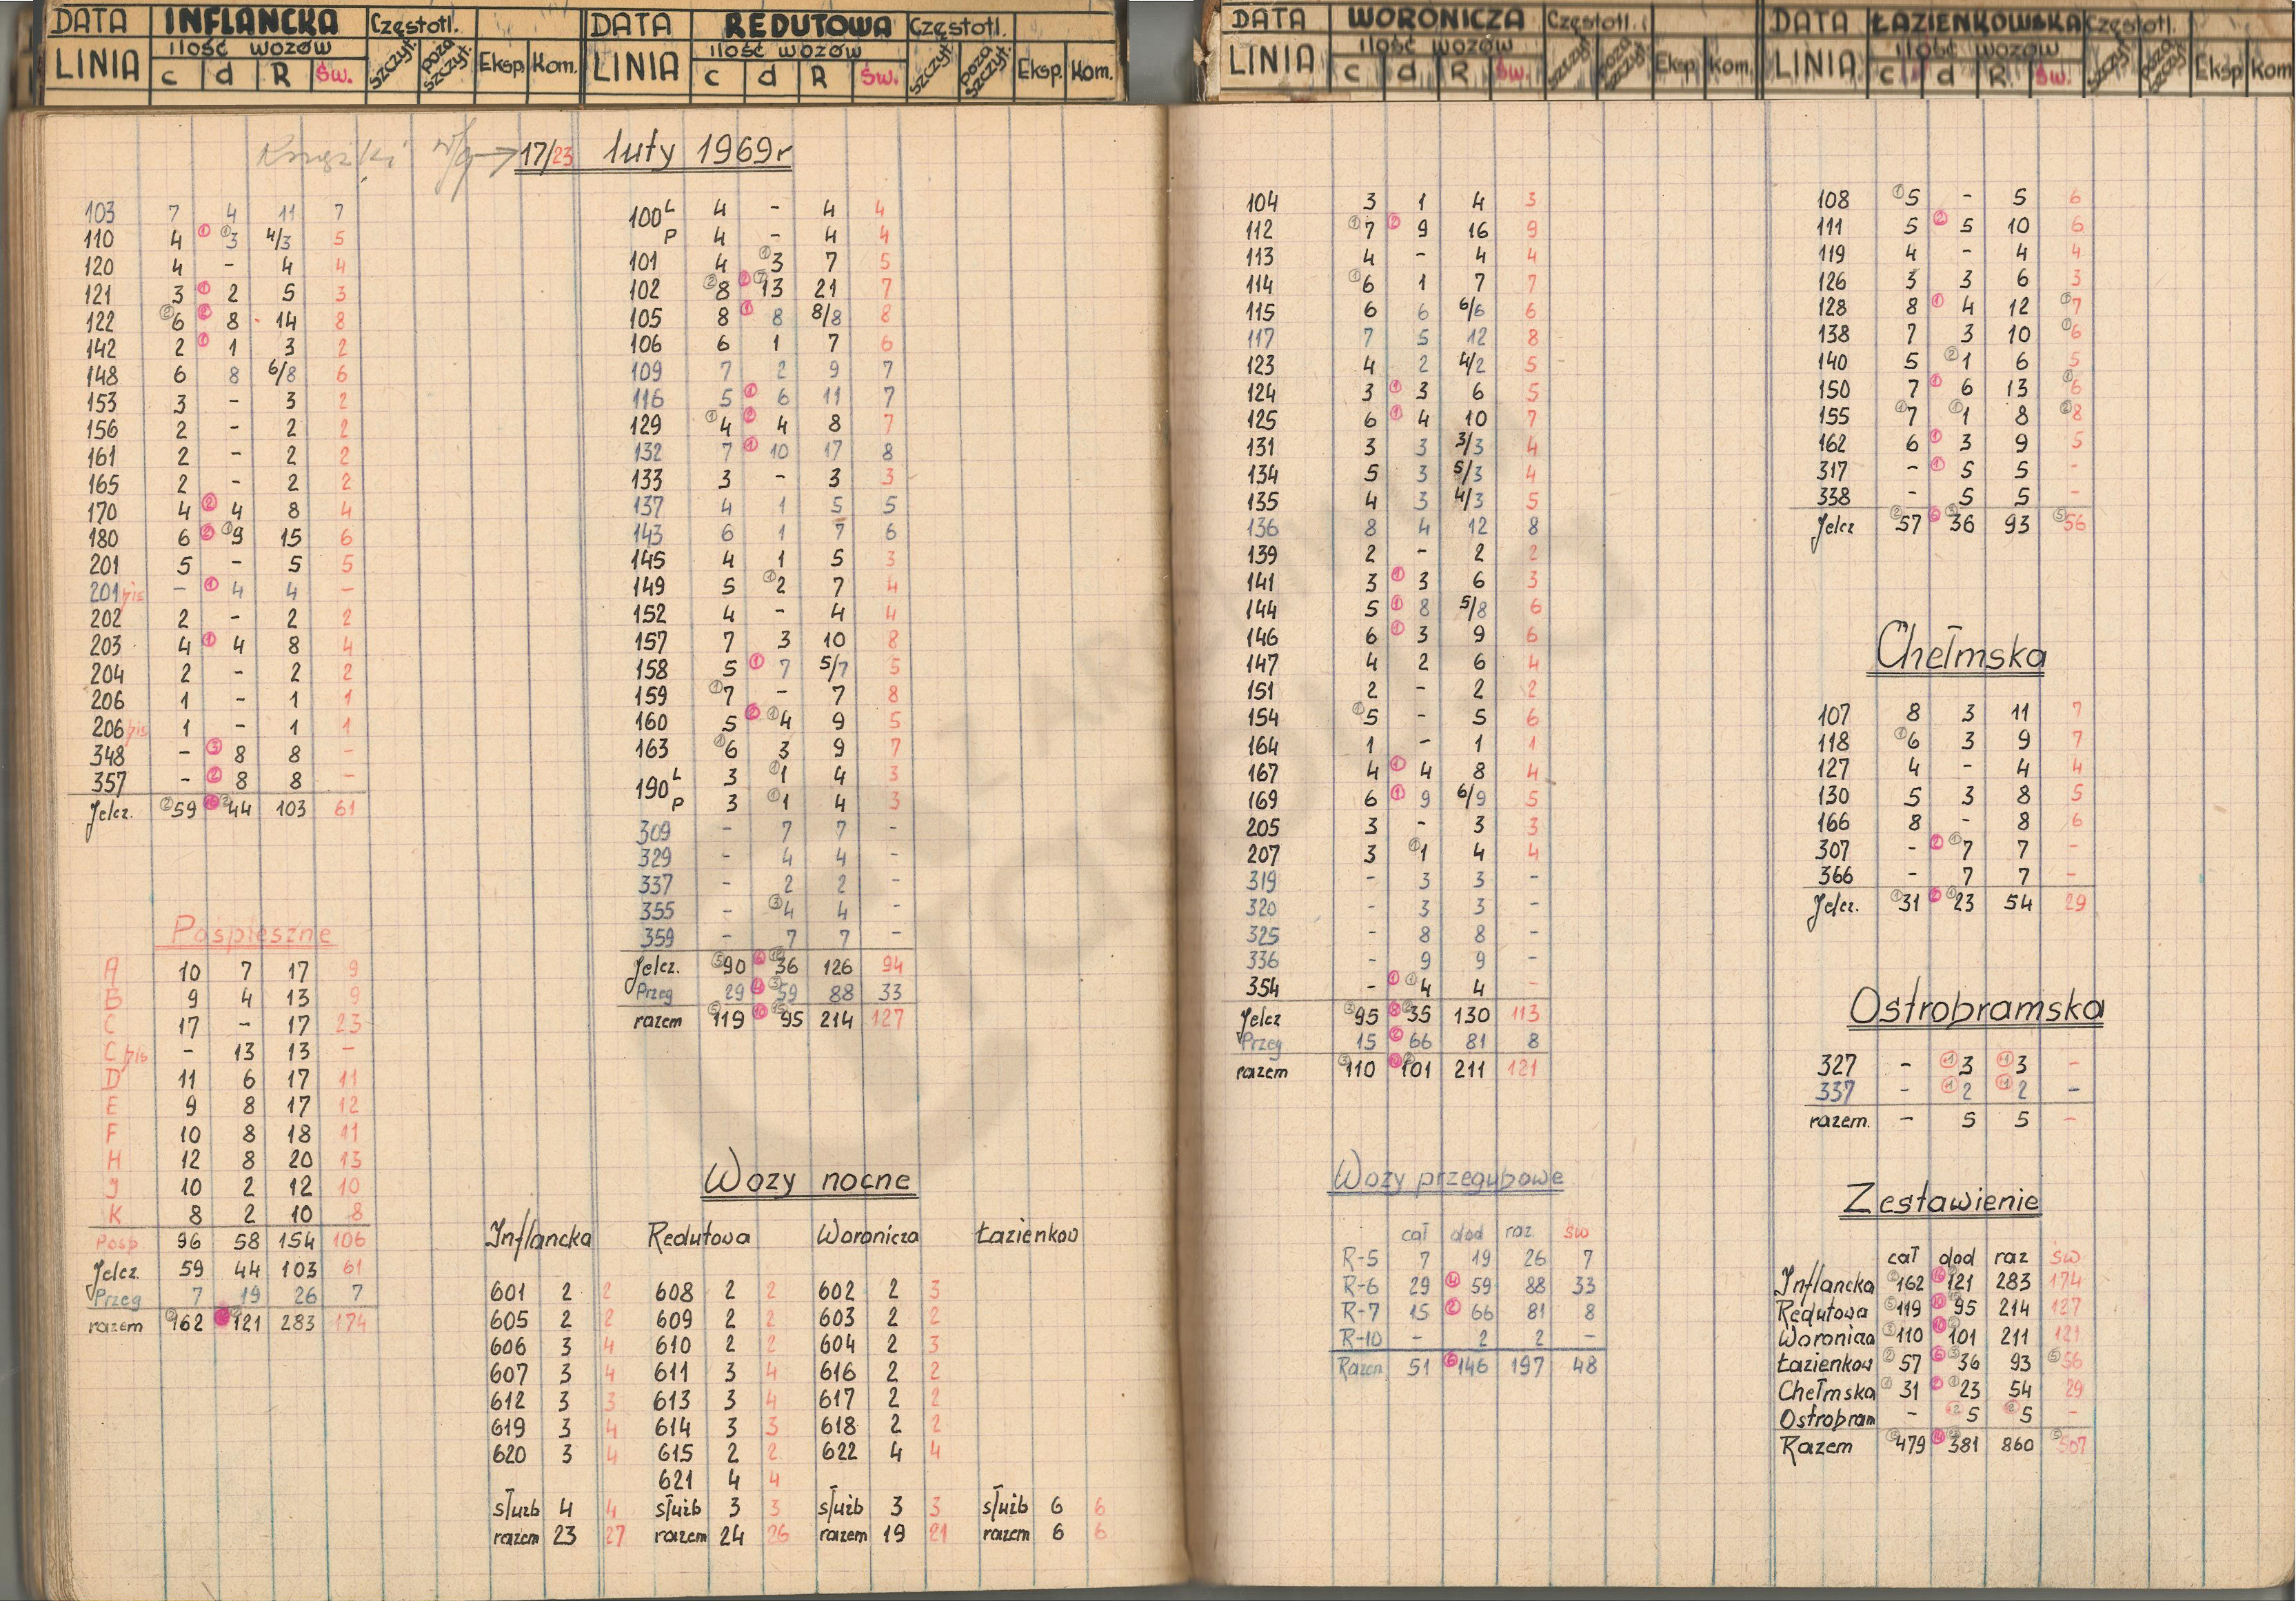 DATA INFLANCKA Częstotl.
LINIA ilość wozów c d R Św. szczyt. poza szczyt. Eksp. Kom.
DATA REDUTOWA Częstotl.
LINIA ilość wozów c d R Św. szczyt. poza szczyt. Eksp. Kom.
DATA WORONICZA Częstotl.
LINIA ilość wozów c d R Św. szczyt. poza szczyt. Eksp. Kom.
DATA ŁAZIENKOWSKA Częstotl.
LINIA ilość wozów c d R Św. szczyt. poza szczyt. Eksp Kom
17/23 luty 1969r
103 7 4 11 7
110 4 ① ①3 4/3 5
120 4 - 4 4
121 3 ① 2 5 3
122 ②6 ② 8 14 8
142 2 ① 1 3 2
148 6 8 6/8 6
153 3 - 3 2
156 2 - 2 2
161 2 - 2 2
165 2 - 2 2
170 4 ② 4 8 4
180 6 ② ①9 15 6
201 5 - 5 5
201bis - ① 4 4 -
202 2 - 2 2
203 4 ① 4 8 4
204 2 - 2 2
206 1 - 1 1
206bis 1 - 1 1
348 - ③ 8 8 -
357 - ② 8 8 -
Jelcz. ②59 ⑯ ②44 103 61
Pospieszne
A 10 7 17 9
B 9 4 13 9
C 17 - 17 23
C bis - 13 13 -
D 11 6 17 11
E 9 8 17 12
F 10 8 18 11
H 12 8 20 13
J 10 2 12 10
K 8 2 10 8
Posp 96 58 154 106
Jelcz. 59 44 103 61
Przeg 7 19 26 7
razem ②162 121 283 174
100L 4 - 4 4
P 4 - 4 4
101 4 ①3 7 5
102 ②8 ② ⑦13 21 7
105 8 ① 8 8/8 8
106 6 1 7 6
109 7 2 9 7
116 5 ① 6 11 7
129 ①4 ② 4 8 7
132 7 ① 10 17 8
133 3 - 3 3
137 4 1 5 5
143 6 1 7 6
145 4 1 5 3
149 5 ①2 7 4
152 4 - 4 4
157 7 3 10 8
158 5 ① 7 5/7 5
159 ①7 - 7 8
160 5 ② ①4 9 5
163 ①6 3 9 7
190L 3 ①1 4 3
P 3 ①1 4 3
309 - 7 7 -
329 - 4 4 -
337 - 2 2 -
355 - ③4 4 -
359 - 7 7 -
Jelcz. ⑤90 ⑥ ⑫36 126 94
Przeg 29 ④ ③59 88 33
razem ⑤119 ⑩ ⑮95 214 127
Wozy nocne
Inflancka Redutowa Woronicza Łazienkow
601 2 2 608 2 2 602 2 3
605 2 2 609 2 2 603 2 2
606 3 4 610 2 2 604 2 3
607 3 4 611 3 4 616 2 2
612 3 3 613 3 4 617 2 2
619 3 4 614 3 3 618 2 2
620 3 4 615 2 2 622 4 4
621 4 4
służb 4 4 służb 3 3 służb 3 3 służb 6 6
razem 23 27 razem 24 26 razem 19 21 razem 6 6
104 3 1 4 3
112 ①7 ② 9 16 9
113 4 - 4 4
114 ①6 1 7 7
115 6 6 6/6 6
117 7 5 12 8
123 4 2 4/2 5
124 3 ① 3 6 5
125 6 ① 4 10 7
131 3 3 3/3 4
134 5 3 5/3 4
135 4 3 4/3 5
136 8 4 12 8
139 2 - 2 2
141 3 ① 3 6 3
144 5 ① 8 5/8 6
146 6 ① 3 9 6
147 4 2 6 4
151 2 - 2 2
154 ①5 - 5 6
164 1 - 1 1
167 4 ① 4 8 4
169 6 ① 9 6/9 5
205 3 - 3 3
207 3 ①1 4 4
319 - 3 3 -
320 - 3 3 -
325 - 8 8 -
336 - 9 9 -
354 - ① ①4 4 -
Jelcz ③95 ⑧ ②35 130 113
Przeg 15 ② 66 81 8
razem ③110 ⑩ ②101 211 121
Wozy przegubowe
cał dod raz św
R-5 7 19 26 7
R-6 29 ④ 59 88 33
R-7 15 ② 66 81 8
R-10 - 2 2 -
Razem 51 ⑥146 197 48
108 ①5 - 5 6
111 5 ② 5 10 6
119 4 - 4 4
126 3 3 6 3
128 8 ① 4 12 ①7
138 7 3 10 ①6
140 5 ②1 6 5
150 7 ① 6 13 ①6
155 ①7 ①1 8 ②8
162 6 ① 3 9 5
317 - ① 5 5 -
338 - 5 5 -
Jelcz ②57 ⑥ ③36 93 ⑤56
Chełmska
107 8 3 11 7
118 ①6 3 9 7
127 4 - 4 4
130 5 3 8 5
166 8 - 8 6
307 - ② ①7 7 -
366 - 7 7 -
Jelcz. ①31 ② ①23 54 29
Ostrobramska
327 - +1 3 +1 3 -
337 - +1 2 +1 2 -
razem. - 5 5 -
Zestawienie
cał dod raz św
Inflancka ②162 ⑯ 121 283 174
Redutowa ⑤119 ⑩ ⑮95 214 127
Woronicza ③110 ⑩ ②101 211 121
Łazienkow ②57 ⑥ ③36 93 ⑤56
Chełmska ①31 ② ①23 54 29
Ostrobram - 5 5 -
Razem 479 381 860 ⑤507